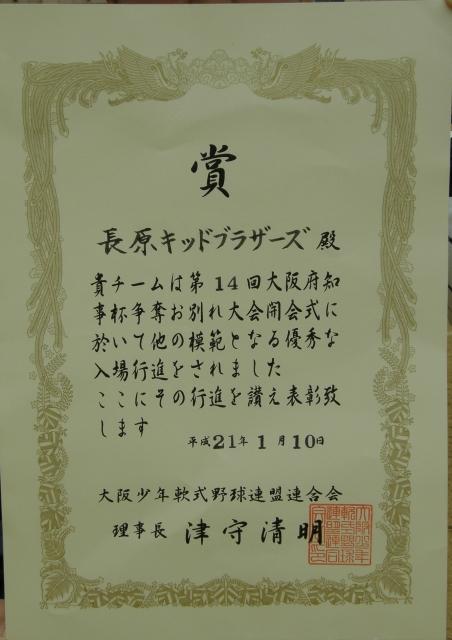 賞
長原キッドブラザーズ 殿
貴チームは第14回大阪府知
事杯争奪お別れ大会開会式に
於いて他の模範となる優秀な
入場行進をされました
ここにその行進を讃え表彰致
します
平成21年1月10日
大阪少年軟式野球連盟連合会
理事長 津守清明